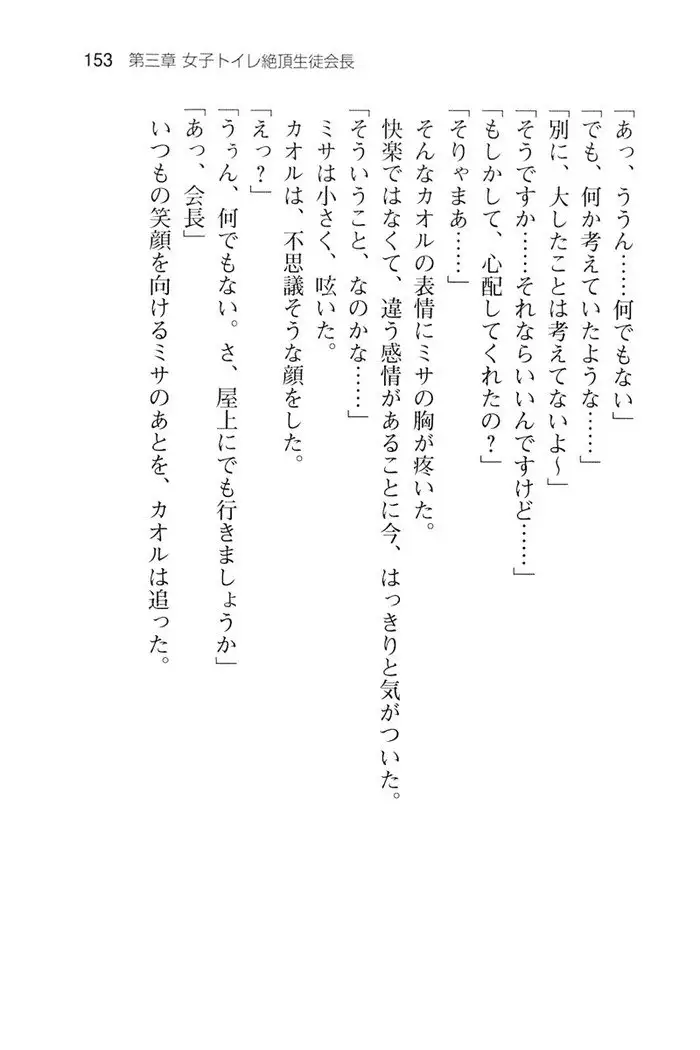 153 第三章 女子トイレ絶頂生徒会長
「あっ、ううん……何でもない」
「でも、何か考えていたような……」
「別に、大したことは考えてないよ～」
「そうですか……それならいいんですけど……」
「もしかして、心配してくれたの？」
「そりゃまあ……」
そんなカオルの表情にミサの胸が疼いた。
快楽ではなくて、違う感情があることに今、はっきりと気がついた。
「そういうこと、なのかな……」
ミサは小さく、呟いた。
カオルは、不思議そうな顔をした。
「えっ？」
「うぅん、何でもない。さ、屋上にでも行きましょうか」
「あっ、会長」
いつもの笑顔を向けるミサのあとを、カオルは追った。